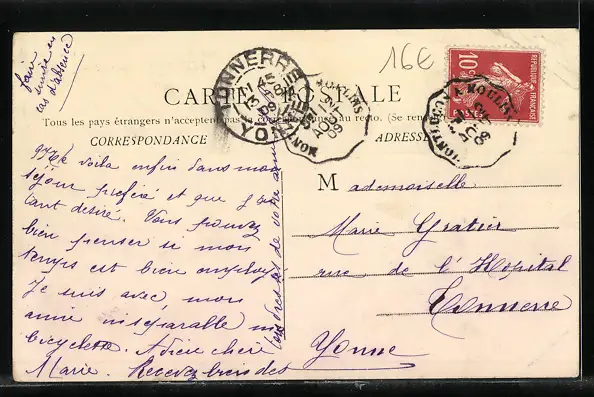 faire
suivre en
cas d'absence
16€
CARTE POSTALE
Tous les pays étrangers n'acceptent pas la correspondance au recto.
CORRESPONDANCE
ADRESSE
TONNERRE
YONNE
10
REPUBLIQUE FRANÇAISE
Me voila enfin dans mon
séjour préféré et que j'ai
tant désiré. Vous pouvez
bien penser si mon
temps est bien employé
Je suis avec mon
amie inséparable ma
bicyclette. Adieu chère
Marie. Recevez bien des
caresses de votre amie
Mademoiselle
Marie Gratier
rue de l'Hopital
Tonnerre
Yonne